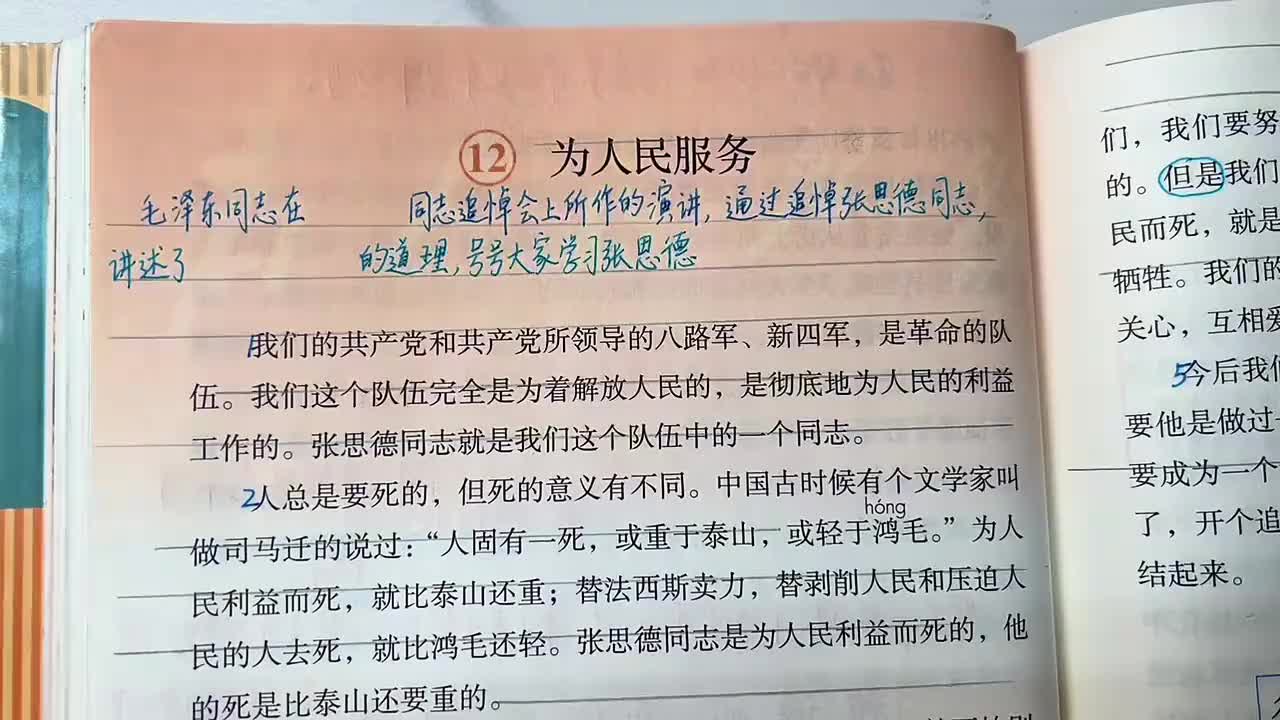 12 为人民服务
毛泽东同志在 同志追悼会上所作的演讲，通过追悼张思德同志，
讲述了 的道理，号号大家学习张思德
1我们的共产党和共产党所领导的八路军、新四军，是革命的队
伍。我们这个队伍完全是为着解放人民的，是彻底地为人民的利益
工作的。张思德同志就是我们这个队伍中的一个同志。
2人总是要死的，但死的意义有不同。中国古时候有个文学家叫
hóng
做司马迁的说过：“人固有一死，或重于泰山，或轻于鸿毛。”为人
民利益而死，就比泰山还重；替法西斯卖力，替剥削人民和压迫人
民的人去死，就比鸿毛还轻。张思德同志是为人民利益而死的，他
的死是比泰山还要重的。
们，我们要努
的。但是我们
民而死，就是
牺牲。我们的
关心，互相爱
5今后我们
要他是做过
要成为一个
了，开个追
结起来。